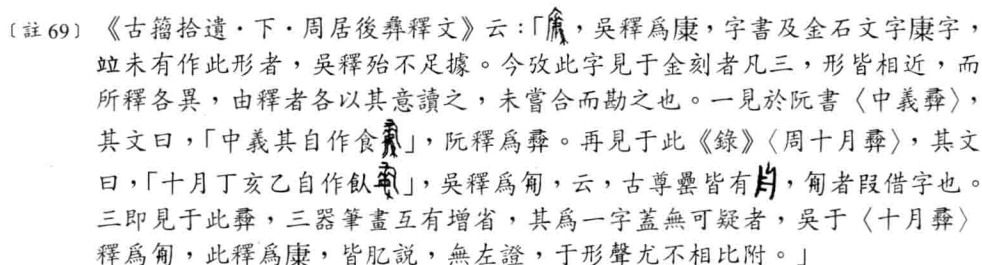 〔註69〕《古籀拾遺·下·周居後彝釋文》云:「，吳釋爲康，字書及金石文字康字，
竝未有作此形者，吳釋殆不足據。今攷此字見于金刻者凡三，形皆相近，而
所釋各異，由釋者各以其意讀之，未嘗合而勘之也。一見於阮書〈中義彝〉，
其文曰，「中義其自作食」，阮釋爲彝。再見于此《錄》〈周十月彝〉，其文
曰，「十月丁亥乙自作飤」，吳釋爲匎，云，古尊罍皆有，匎者叚借字也。
三即見于此彝，三器筆畫互有增省，其爲一字蓋無可疑者，吳于〈十月彝〉
釋爲匎，此釋爲康，皆肊說，無左證，于形聲尤不相比附。」